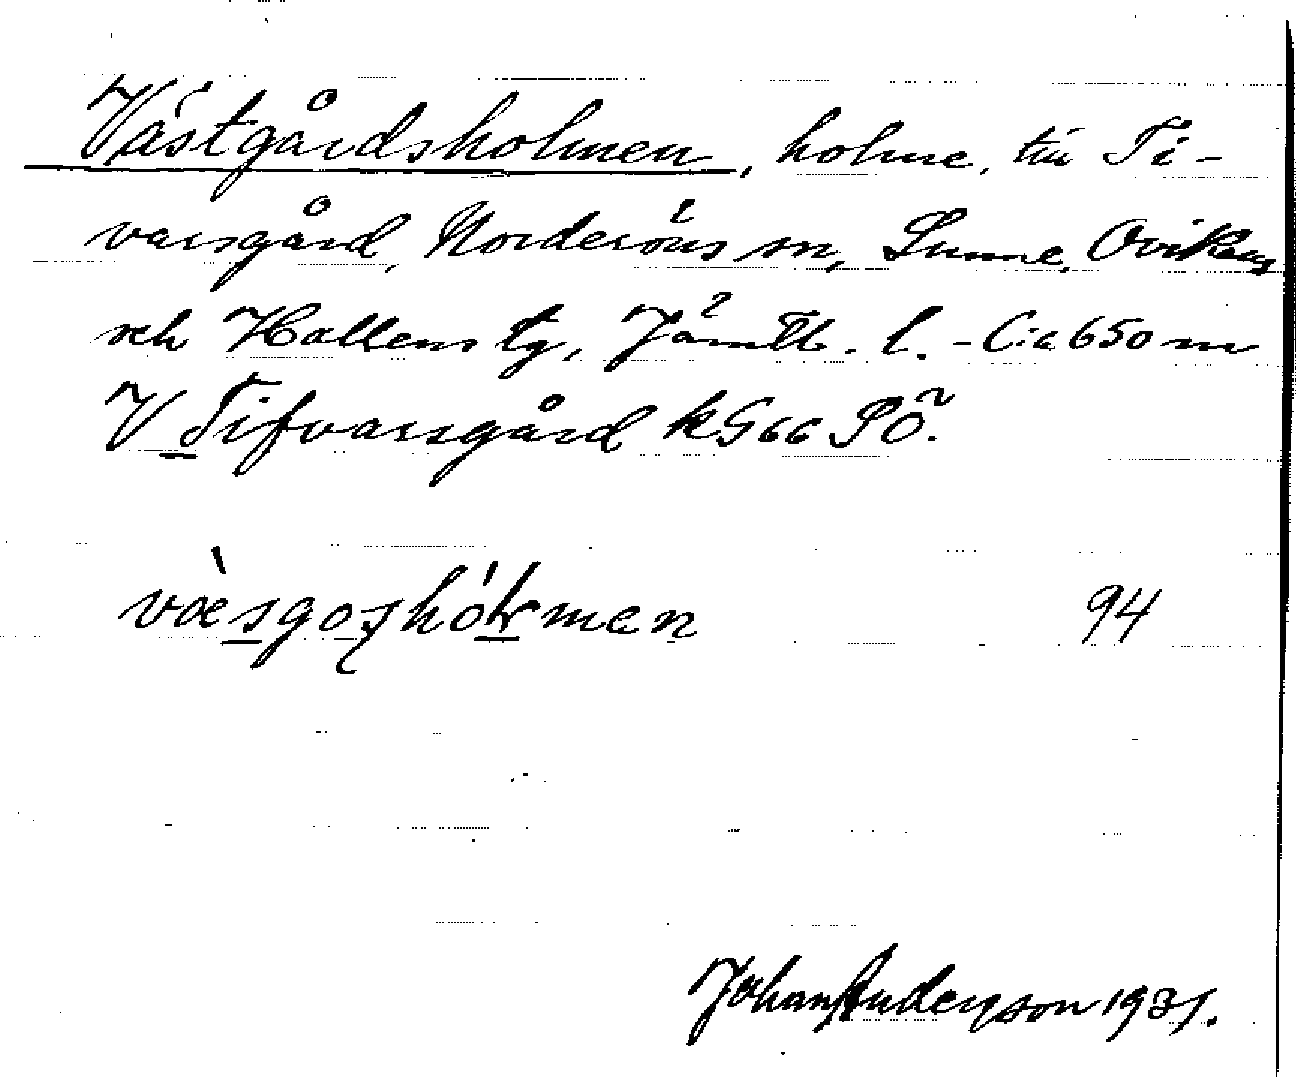 Västgårdsholmen, holme, till Ti-
varsgård, Norderöns sn, Sunne, Ovikens
och Hallens tg, Jämtl. l. - C:a 650 m
V Tifvarsgård k G66 SÖ.
væ̀sgoʂhóɽmen 94
Johan Anderson 1931.